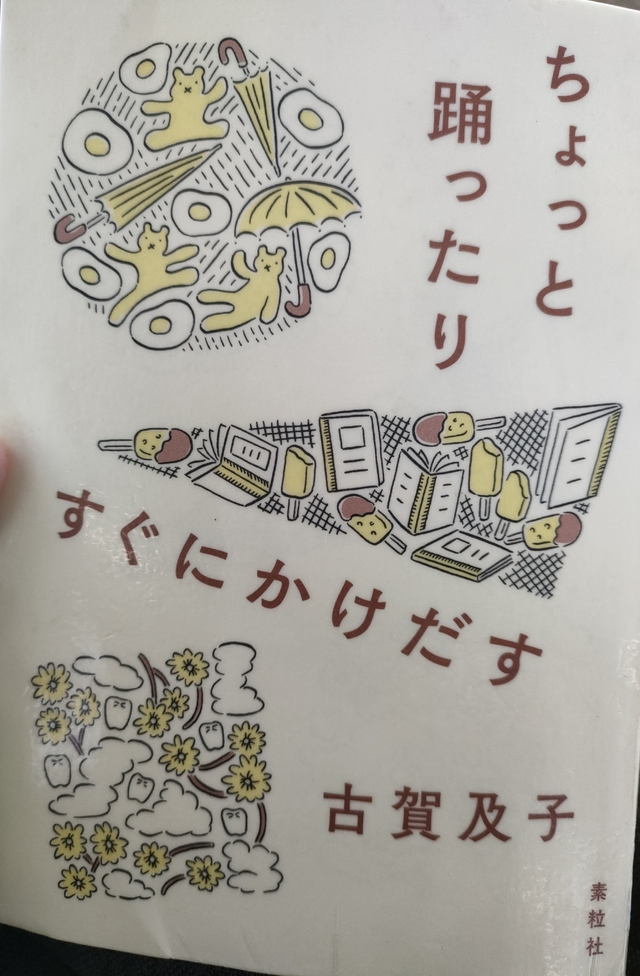 ちょっと
踊ったり
すぐにかけだす
古賀及子
素粒社